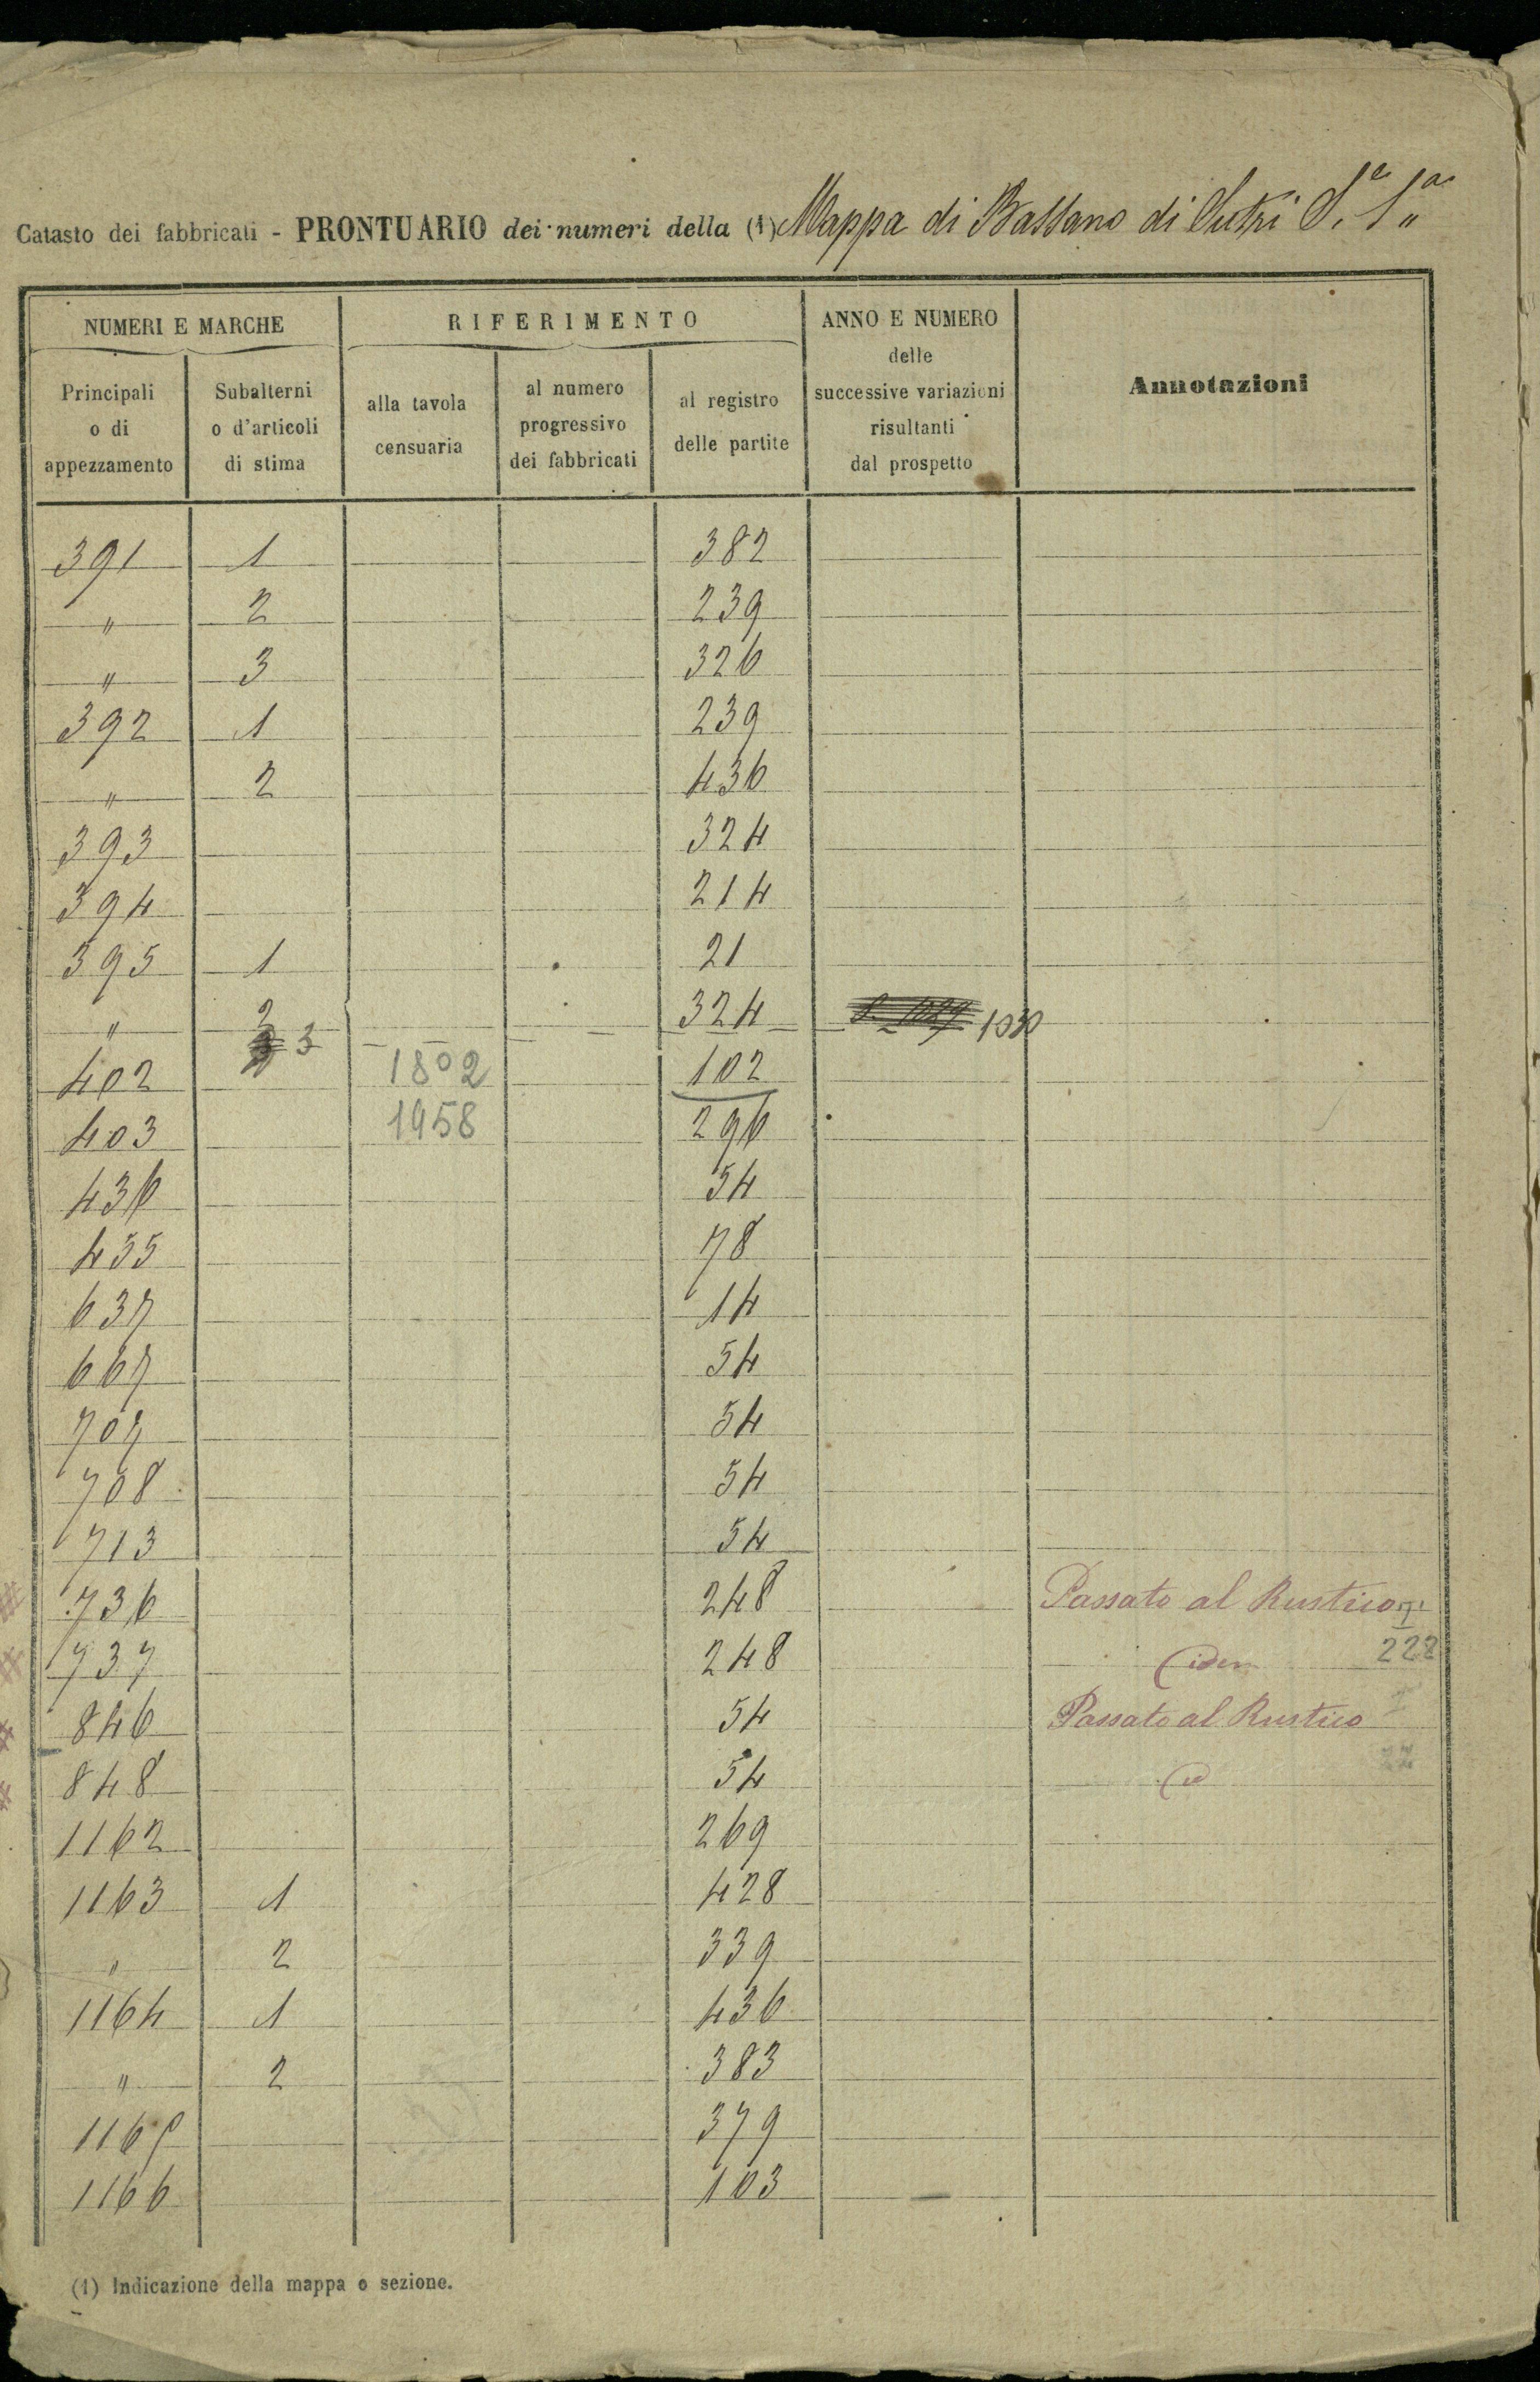 Catasto dei fabbricati - PRONTUARIO dei numeri della (1) Mappa di Bassano di Sutri S.e 1a
NUMERI E MARCHE
RIFERIMENTO
ANNO E NUMERO
delle
successive variazioni
risultanti
dal prospetto
Annotazioni
Principali
o di
appezzamento
Subalterni
o d'articoli
di stima
alla tavola
censuaria
al numero
progressivo
dei fabbricati
al registro
delle partite
391 1 382
" 2 239
" 3 326
392 1 239
" 2 436
393 324
394 214
395 1 21
" 2 324 1030
3
402 1802 102
403 1958 296
436 54
455 78
637 14
667 54
707 54
708 54
713 54
736 248 Passato al Rustico
737 248 idem 222
846 54 Passato al Rustico
848 54 id
1162 269
1163 1 428
" 2 339
1164 1 436
" 2 383
1165 379
1166 103
(1) Indicazione della mappa o sezione.